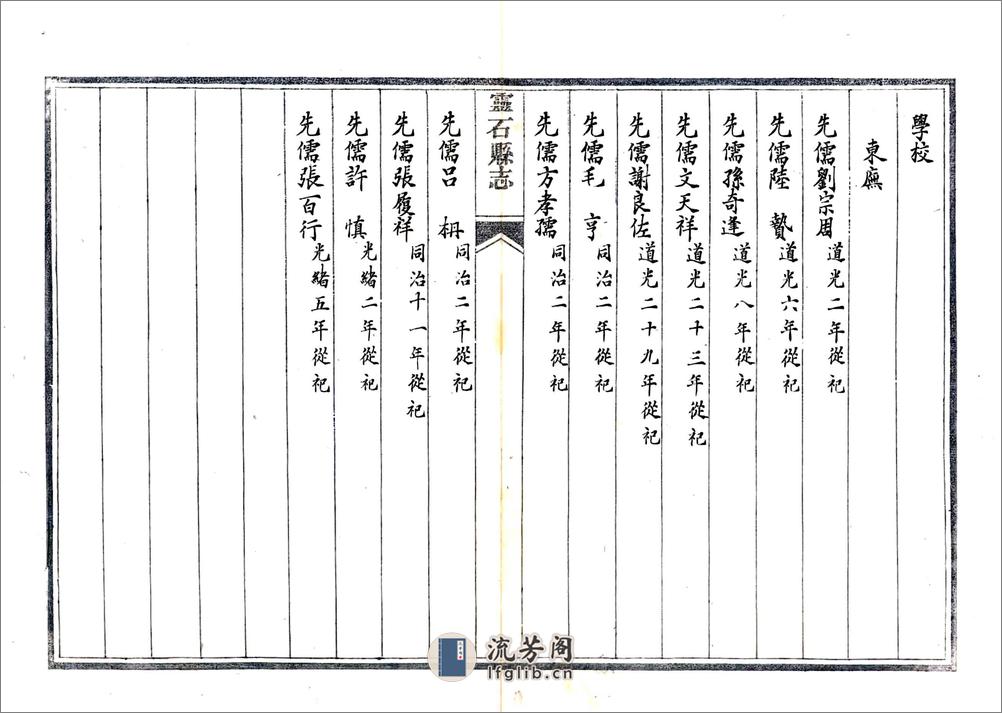 學校
東廡
先儒劉宗周 道光二年從祀
先儒陸 贄 道光六年從祀
先儒孫奇逢 道光八年從祀
先儒文天祥 道光二十三年從祀
先儒謝良佐 道光二十九年從祀
先儒毛 亨 同治二年從祀
先儒方孝孺 同治二年從祀
靈石縣志
先儒呂 枏 同治二年從祀
先儒張履祥 同治十一年從祀
先儒許 慎 光緒二年從祀
先儒張百行 光緒五年從祀
流芳阁
lfglib.cn